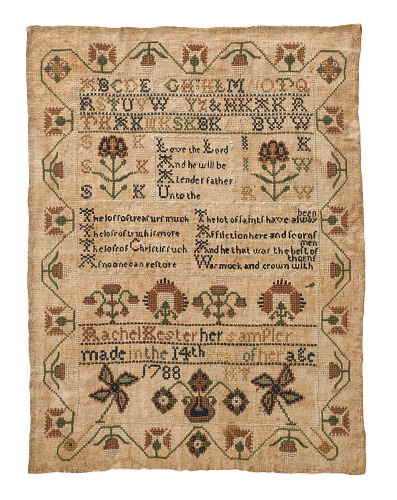 ABCDE GHIKLM NOPQ
RSTUVW YZ & HK AK R
THRAK HK SK BK BWW
S K Love the Lord I K
And he will be I W
S K A tender father R
S K Unto the R W
The loss of treasurs much
The loss of truth is more
The loss of Christ is such
As none can restore
The lot of saints have alway been
Affliction here and scorn
And he that was the best of men
Was mock and crown with thorns
Rachel Kester her sampler
made in the 14th year of her age
1788